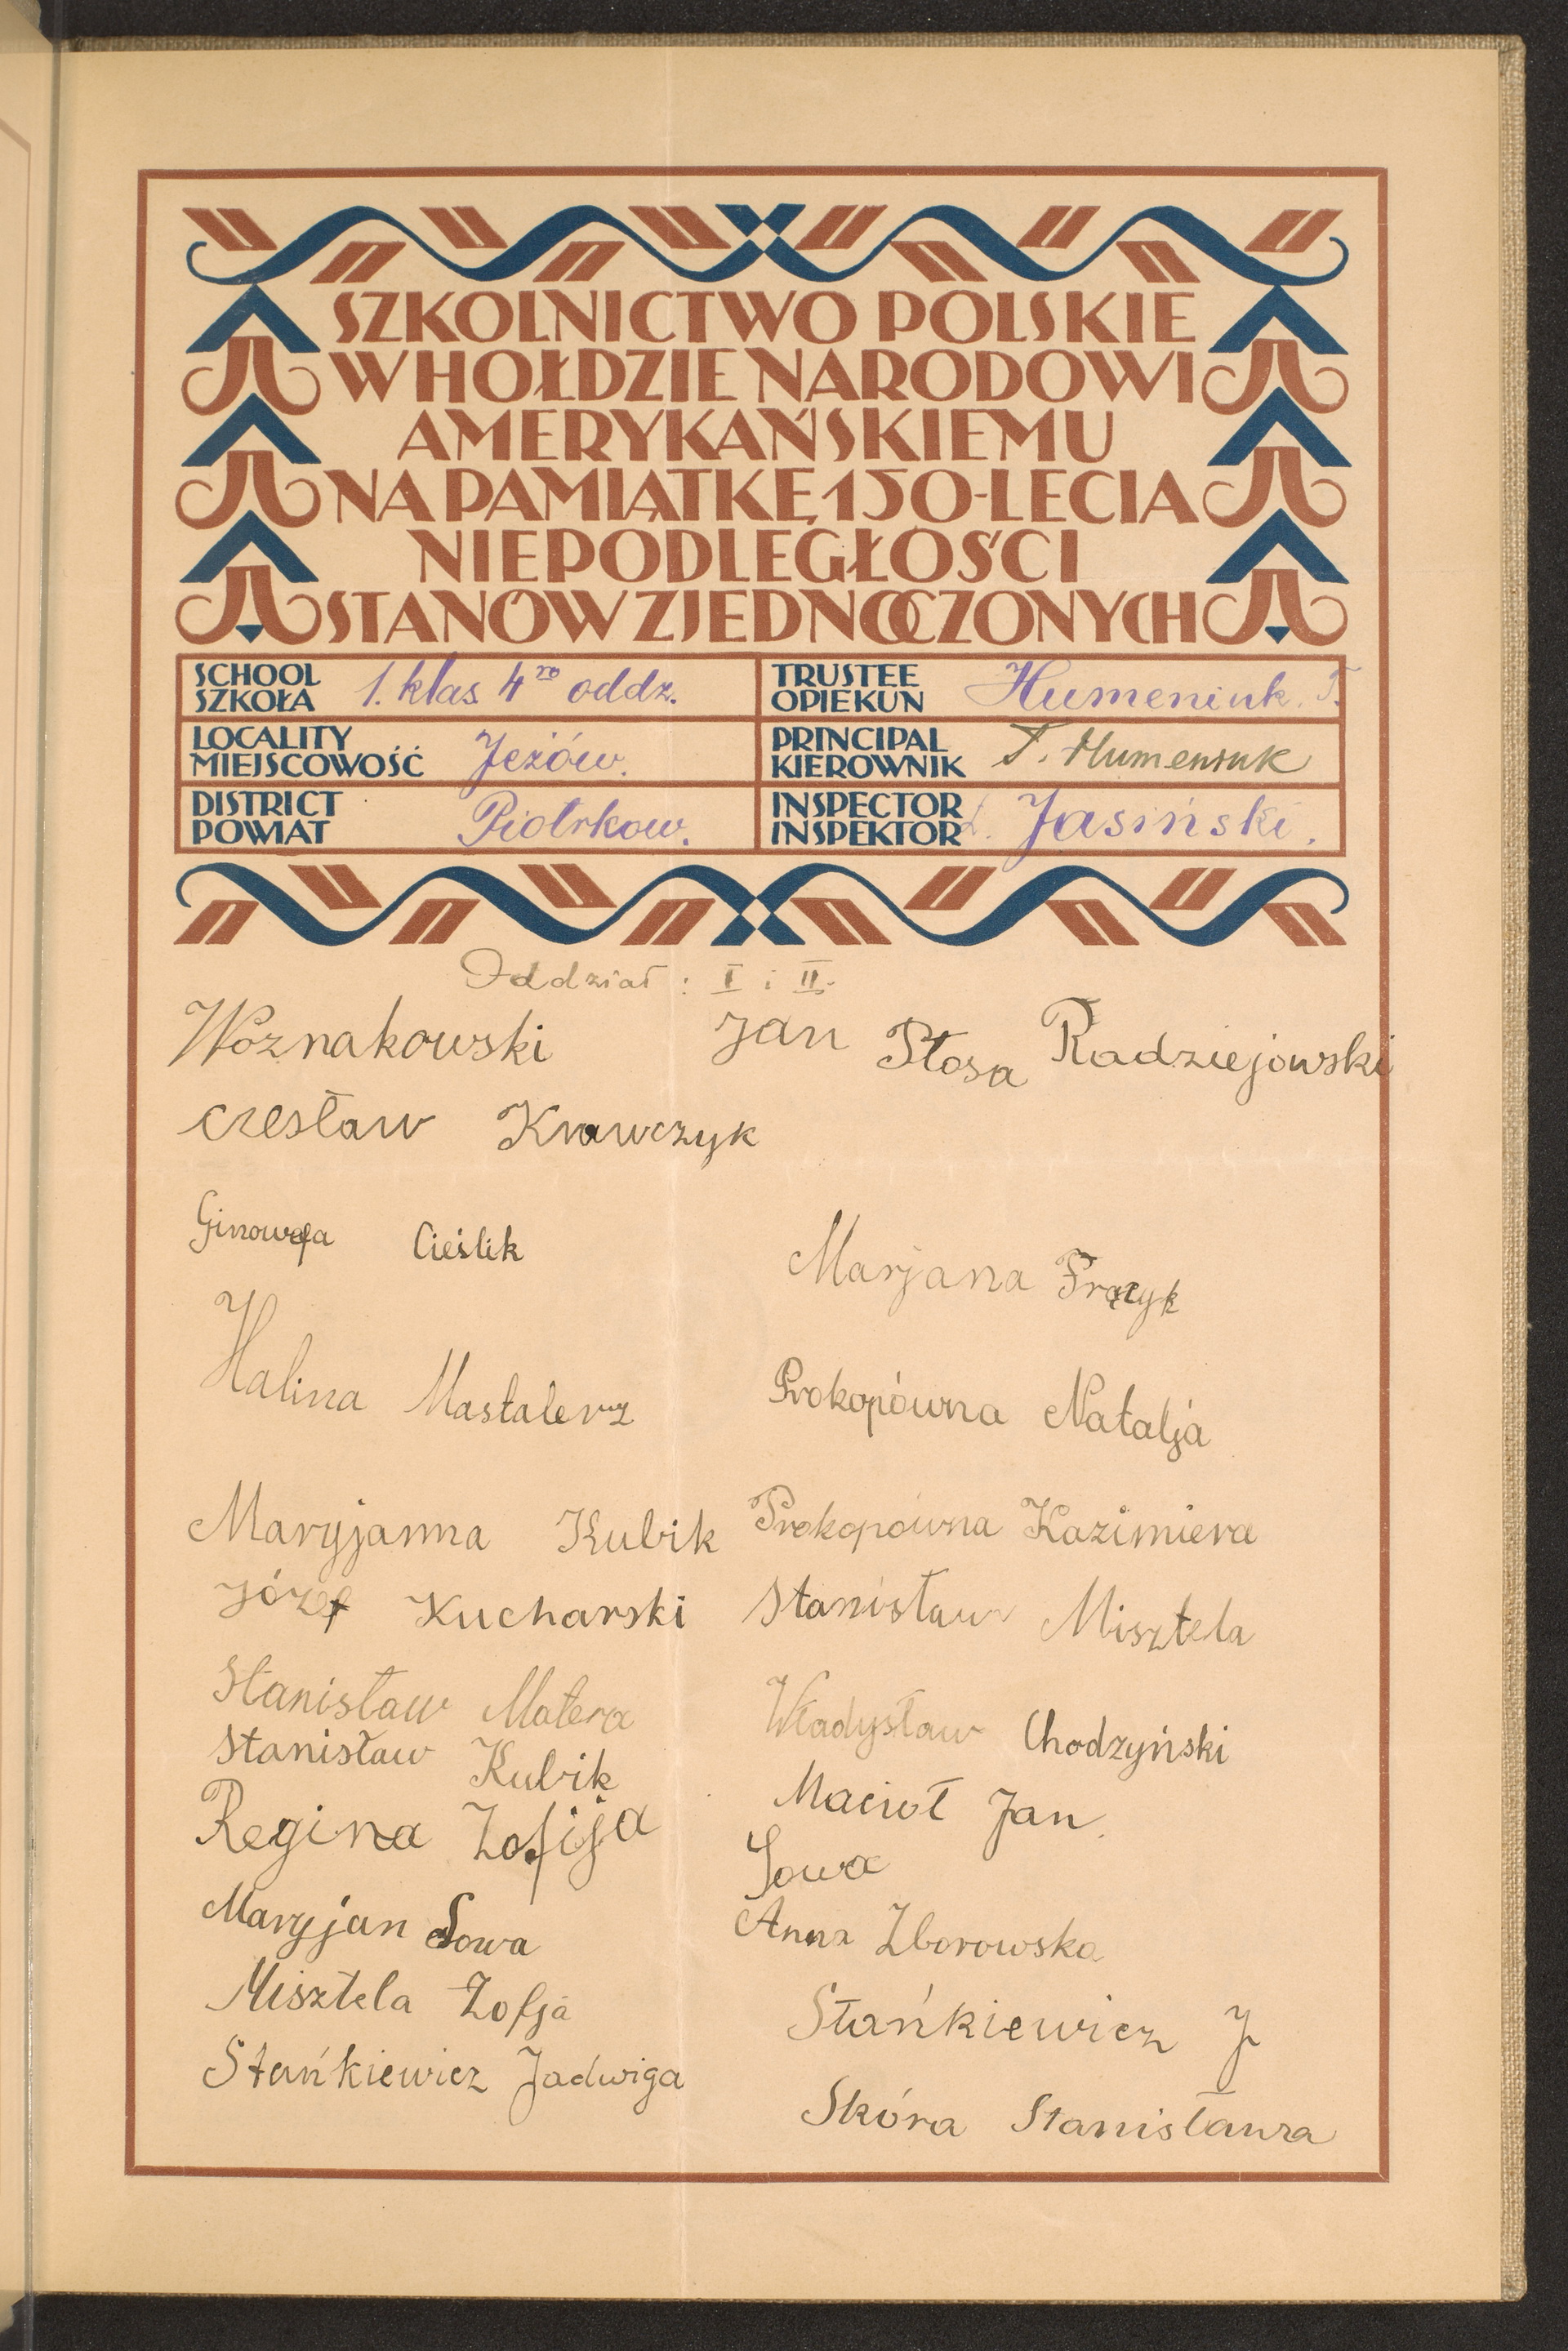 SZKOLNICTWO POLSKIE
W HOŁDZIE NARODOWI
AMERYKAŃSKIEMU
NA PAMIĄTKĘ 150-LECIA
NIEPODLEGŁOŚCI
STANÓW ZJEDNOCZONYCH
SCHOOL
SZKOŁA 1. klas. 4ro oddz.
TRUSTEE
OPIEKUN Humeniuk. T.
LOCALITY
MIEJSCOWOŚĆ Jeżów.
PRINCIPAL
KIEROWNIK T. Humeniuk
DISTRICT
POWIAT Piotrkow.
INSPECTOR
INSPEKTOR Jasiński.
Oddział: I i II.
Woznakowski Jan Stosa Radziejowski
Czesław Krawczyk
Ginowefa Cieślik
Marjana Frącyk
Halina Mastalerz
Prokopówna Natalja
Maryjanna Kubik
Prokopówna Kazimiera
Józef Kucharski
Stanisław Misztela
Stanisław Matera
Władysław Chodzyński
Stanisław Kubik
Macioł Jan.
Regina Zofija
Sowa
Maryjan Sowa
Anna Zborowska
Misztela Zofja
Stańkiewicz J
Stańkiewicz Jadwiga
Skóra Stanisława